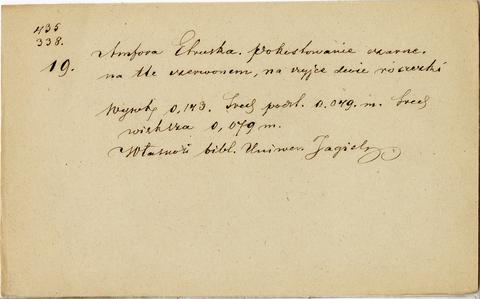 435
338.
19. Amfora Etruska. Pokostowanie czarne.
na tle czerwonem, na szyjce dwie rószczki
Wysok. 0,143. Sred. podst. 0.049. m. Sred
większa 0,079 m.
Własność bibl. Uniwer. Jagiels.